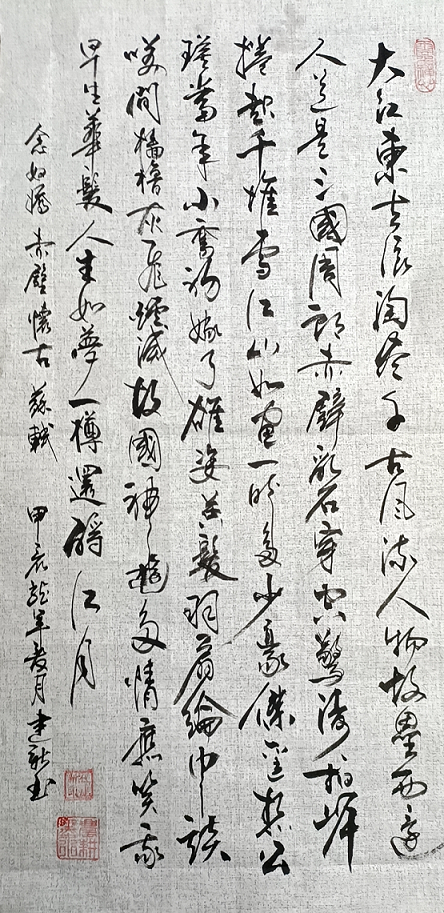 大江東去浪淘盡千古風流人物故壘西邊
人道是三國周郎赤壁亂石穿空驚濤拍岸
捲起千堆雪江山如畫一時多少豪傑遥想公
瑾當年小喬初嫁了雄姿英發羽扇綸巾談
笑間檣櫓灰飛煙滅故國神遊多情應笑我
早生華髮人生如夢一樽還酹江月
念奴嬌 赤壁懷古 蘇軾 甲辰龍年 月建 書